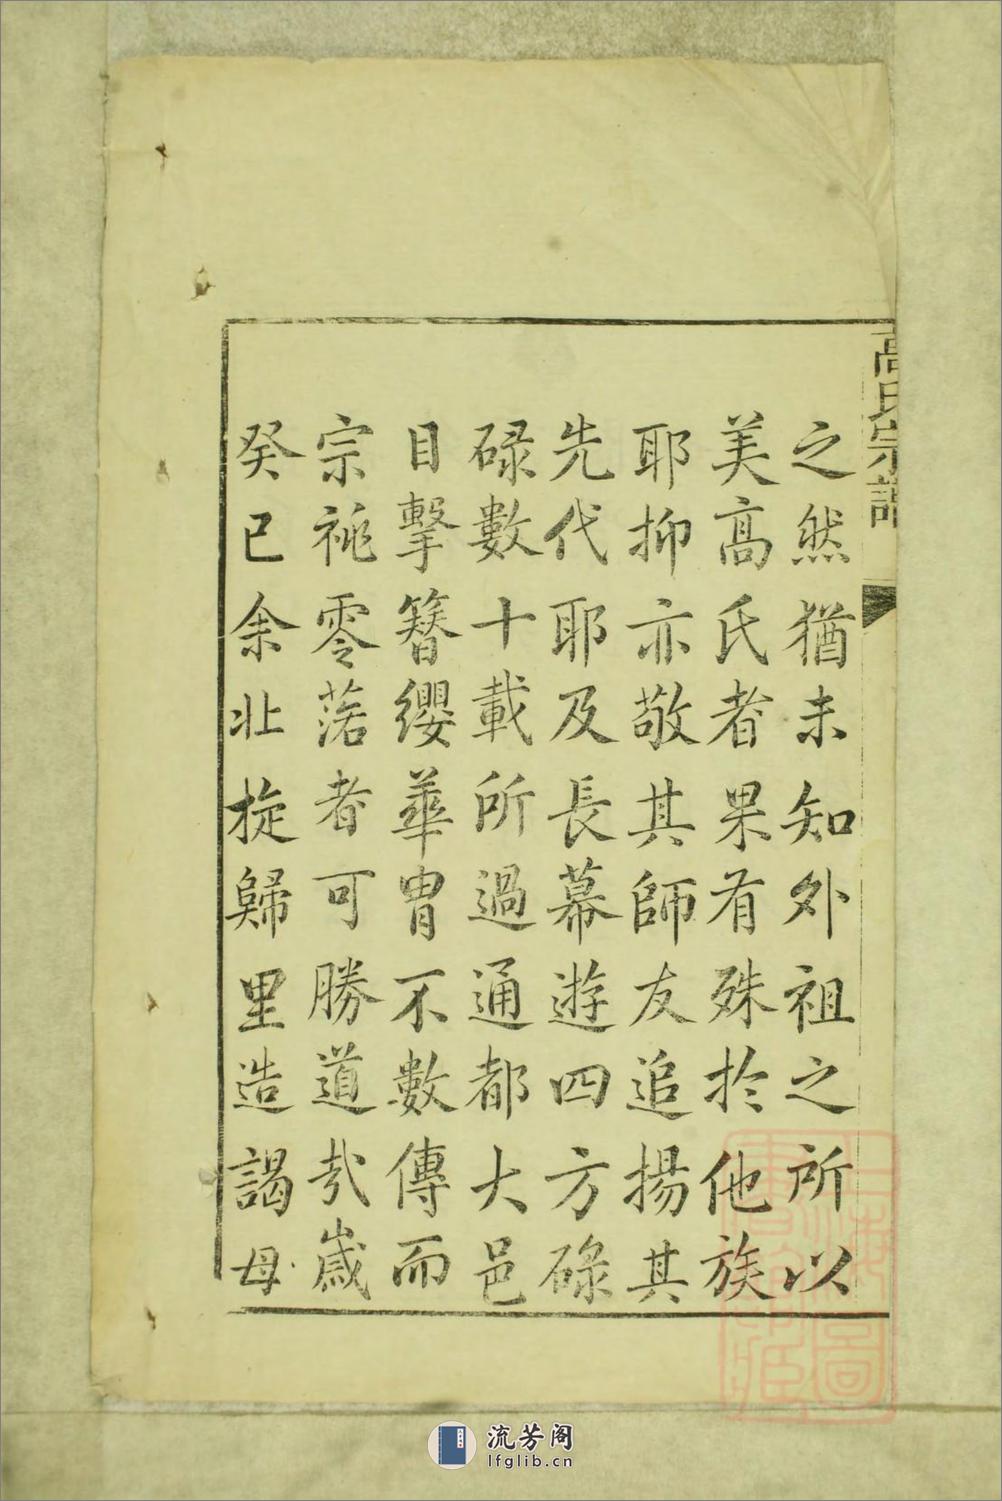 高氏宗譜
之然猶未知外祖之所以
美高氏者果有殊於他族
耶抑亦敬其師友追揚其
先代耶及長幕遊四方碌
碌數十載所過通都大邑
目擊簪纓華胄不數傳而
宗祧零落者可勝道哉歲
癸巳余北旋歸里造謁母
流芳阁
lfglib.cn